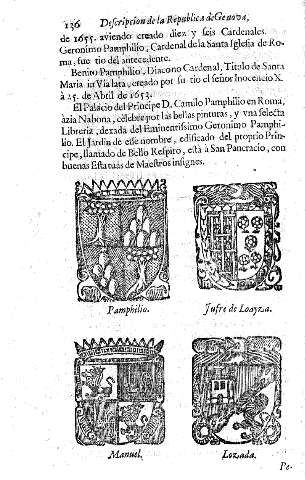 136 Descripcion de la Republica de Genova,
de 1655. aviendo creado diez y seis Cardenales.
Geronimo Pamphilio, Cardenal de la Santa Iglesia de Ro-
ma, fue tio del antecedente.
Benito Pamphilio, Diacono Cardenal, Titulo de Santa
Maria in Via lata, creado por su tio el señor Inocencio X.
à 25. de Abril de 1653.
El Palacio del Principe D. Camilo Pamphilio en Roma,
àzia Nabona, celebre por las bellas pinturas, y vna selecta
Libreria, dexada del Eminentissimo Geronimo Pamphi-
lio. El Jardin de este nombre, edificado del proprio Prin-
cipe, llamado de Bello Respiro, està à San Pancracio, con
buenas Estatuas de Maestros insignes.
Pamphilio.
Jufre de Loayza.
Manuel.
Lozada.
Pe-